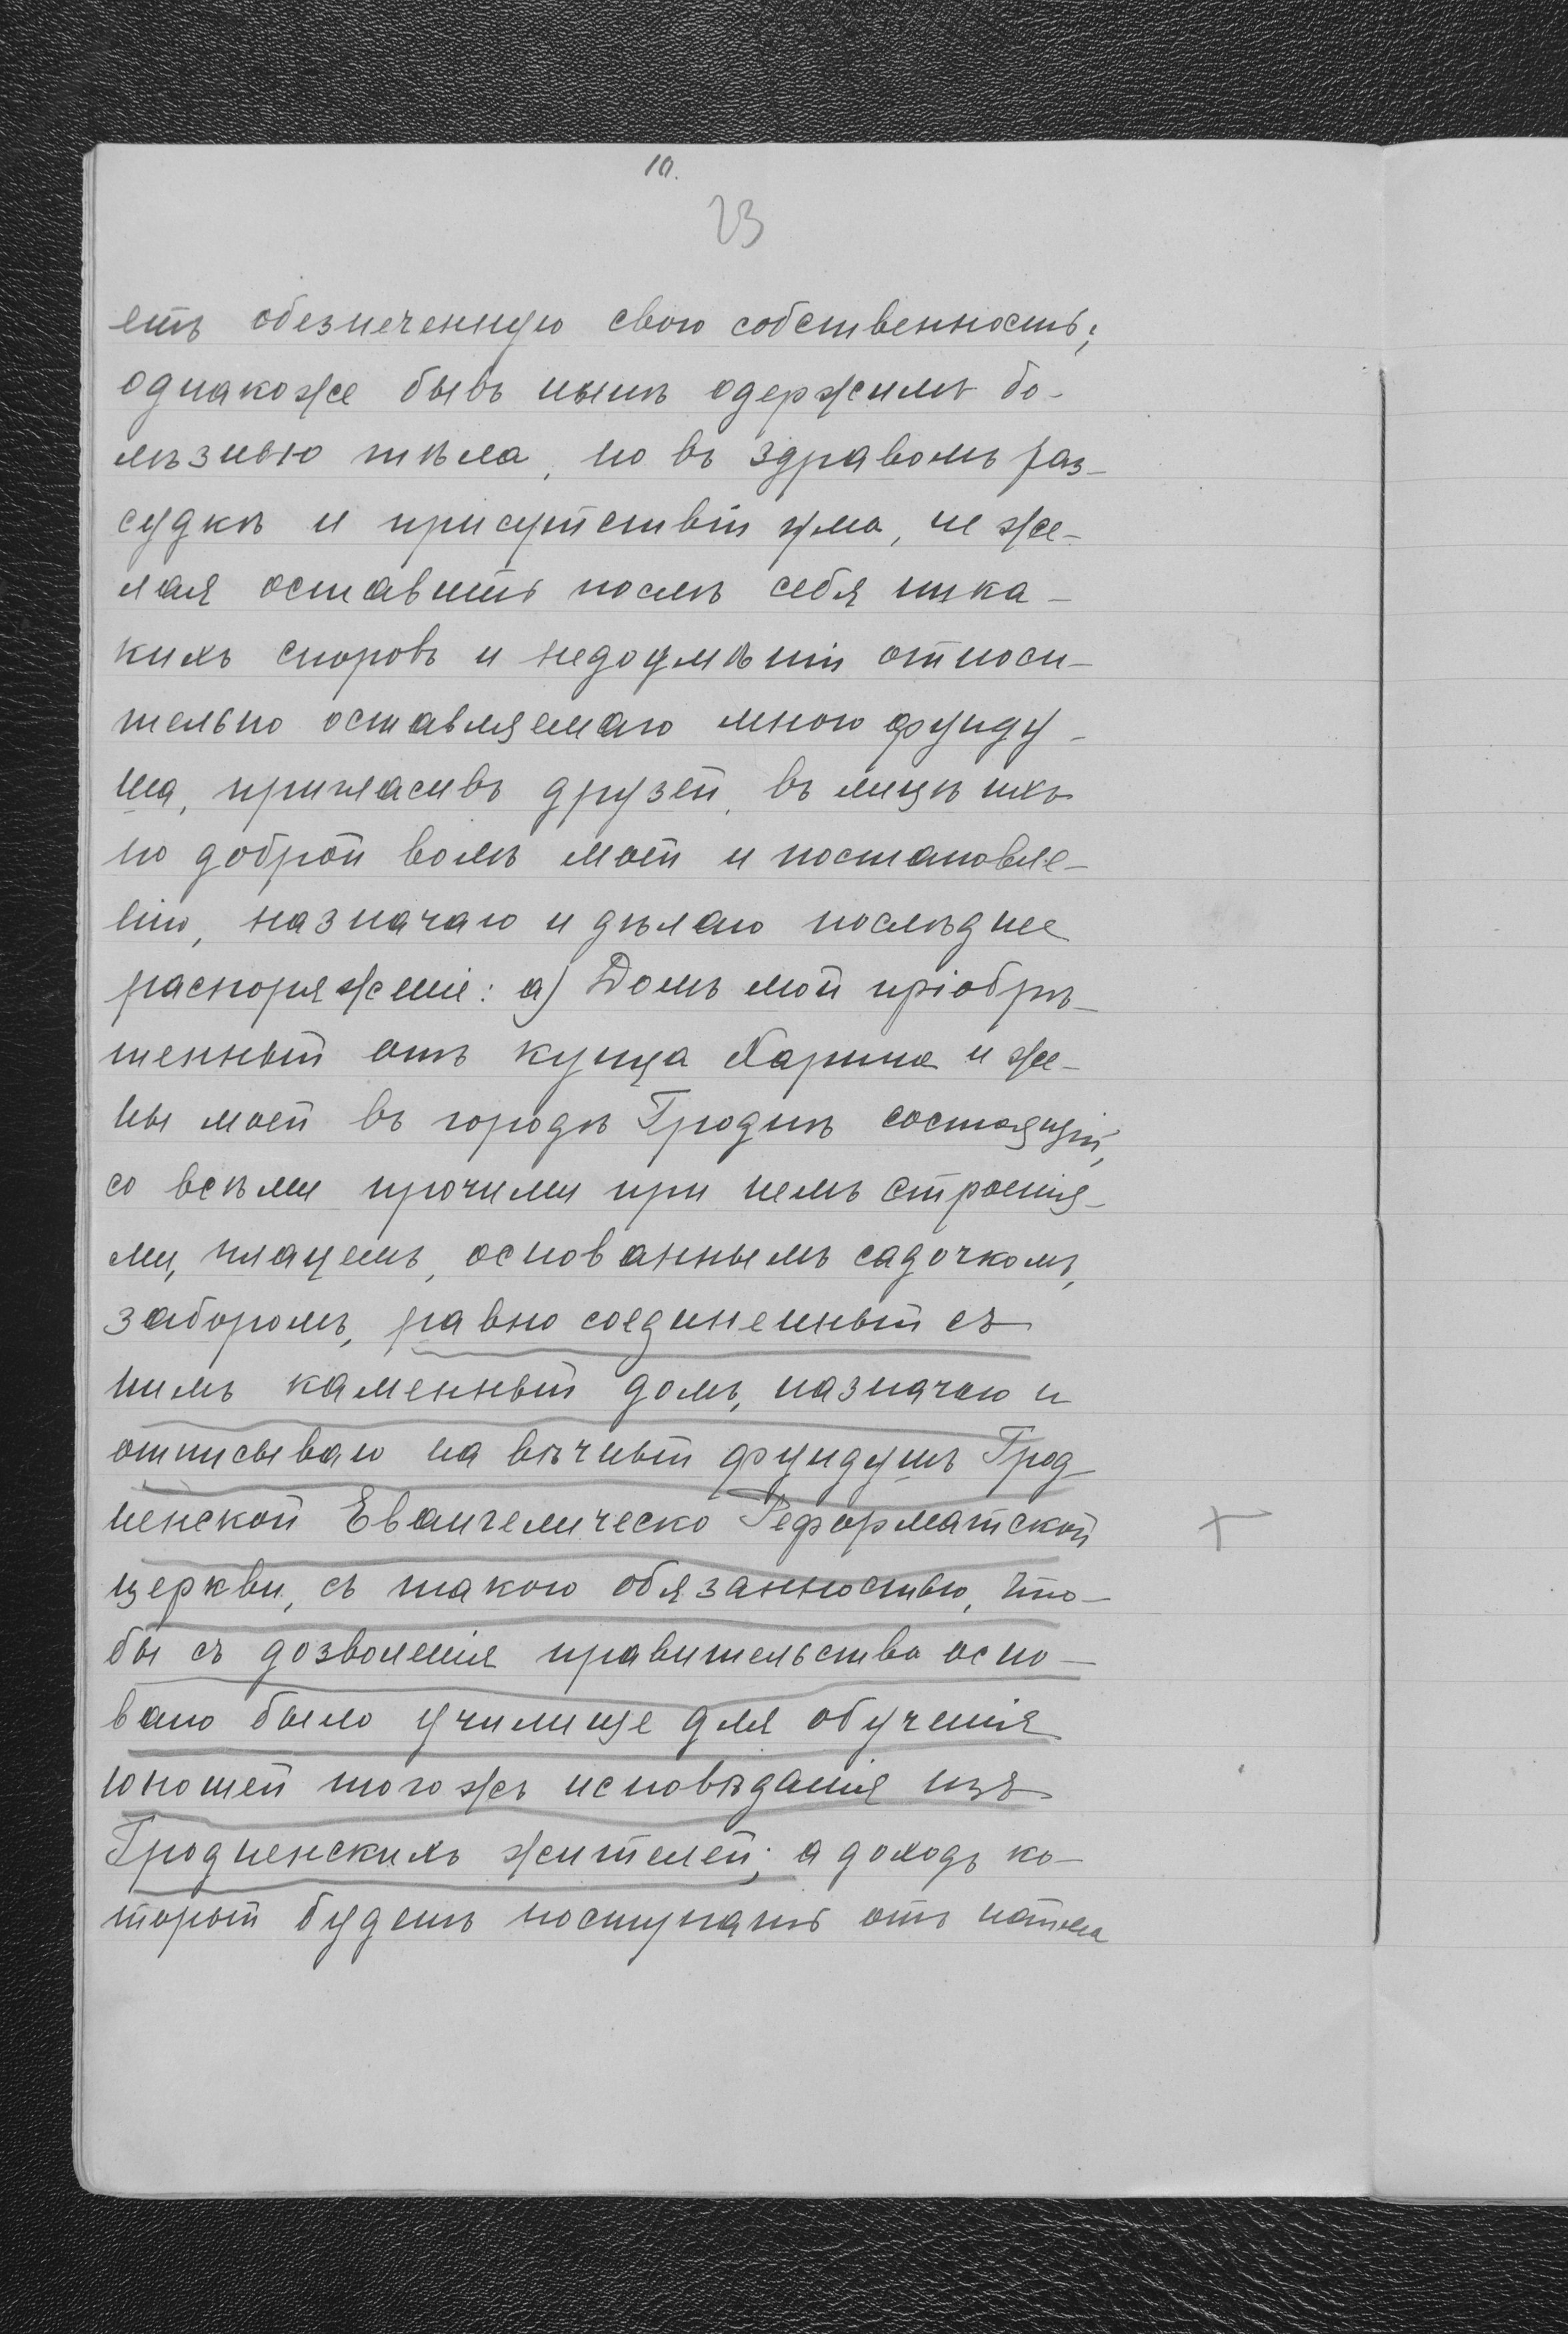 10.
23
етъ обезпеченную свою собственность;
однакоже бывъ нынѣ одержимъ бо-
лѣзнью тѣла, но въ здравомъ раз-
судкѣ и присутствіи ума, не же-
лая оставить послѣ себя ника-
кихъ споровъ и недоумѣній относи-
тельно оставляемаго мною фунду-
ша, пригласивъ друзей, въ лицѣ ихъ
по доброй волѣ моей и постановле-
нію, назначаю и дѣлаю послѣднее
распоряженіе: а) Домъ мой пріобрѣ-
тенный отъ купца Харина и же-
ны моей въ городѣ Гроднѣ состоящій,
со всѣми прочими при немъ строенія-
ми, плацемъ, основаннымъ садочкомъ,
заборомъ, равно соединенный съ
нимъ каменный домъ, назначаю и
отписываю на вѣчный фундушъ Грод-
ненской Евангелическо Реформатской
церкви, съ такою обязанностью, что-
бы съ дозволенія правительства осно-
вано было училище для обученія
юношей того жъ исповѣданія изъ
Гродненскихъ жителей; а доходъ ко-
торый будетъ поступать отъ найма